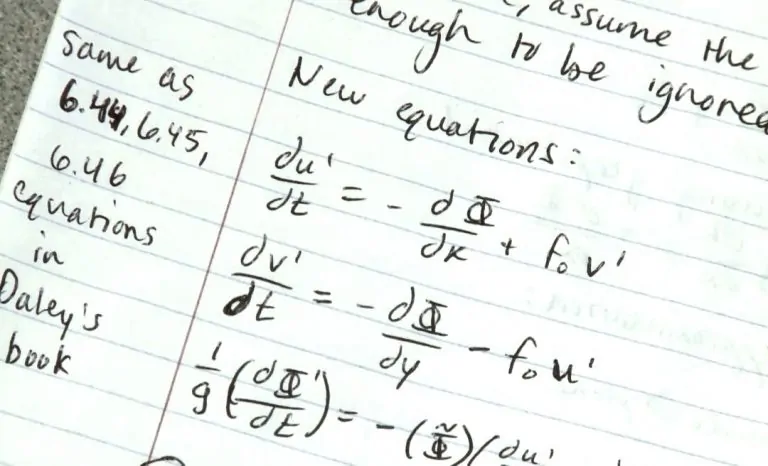 assume the
enough to be ignored
New equations:
du'/dt = - dΦ/dx + f₀ v'
dv'/dt = - dΦ/dy - f₀ u'
1/g (dΦ'/dt) = - (Φ̃)(du'
Same as
6.44, 6.45,
6.46
equations
in
Daley's
book